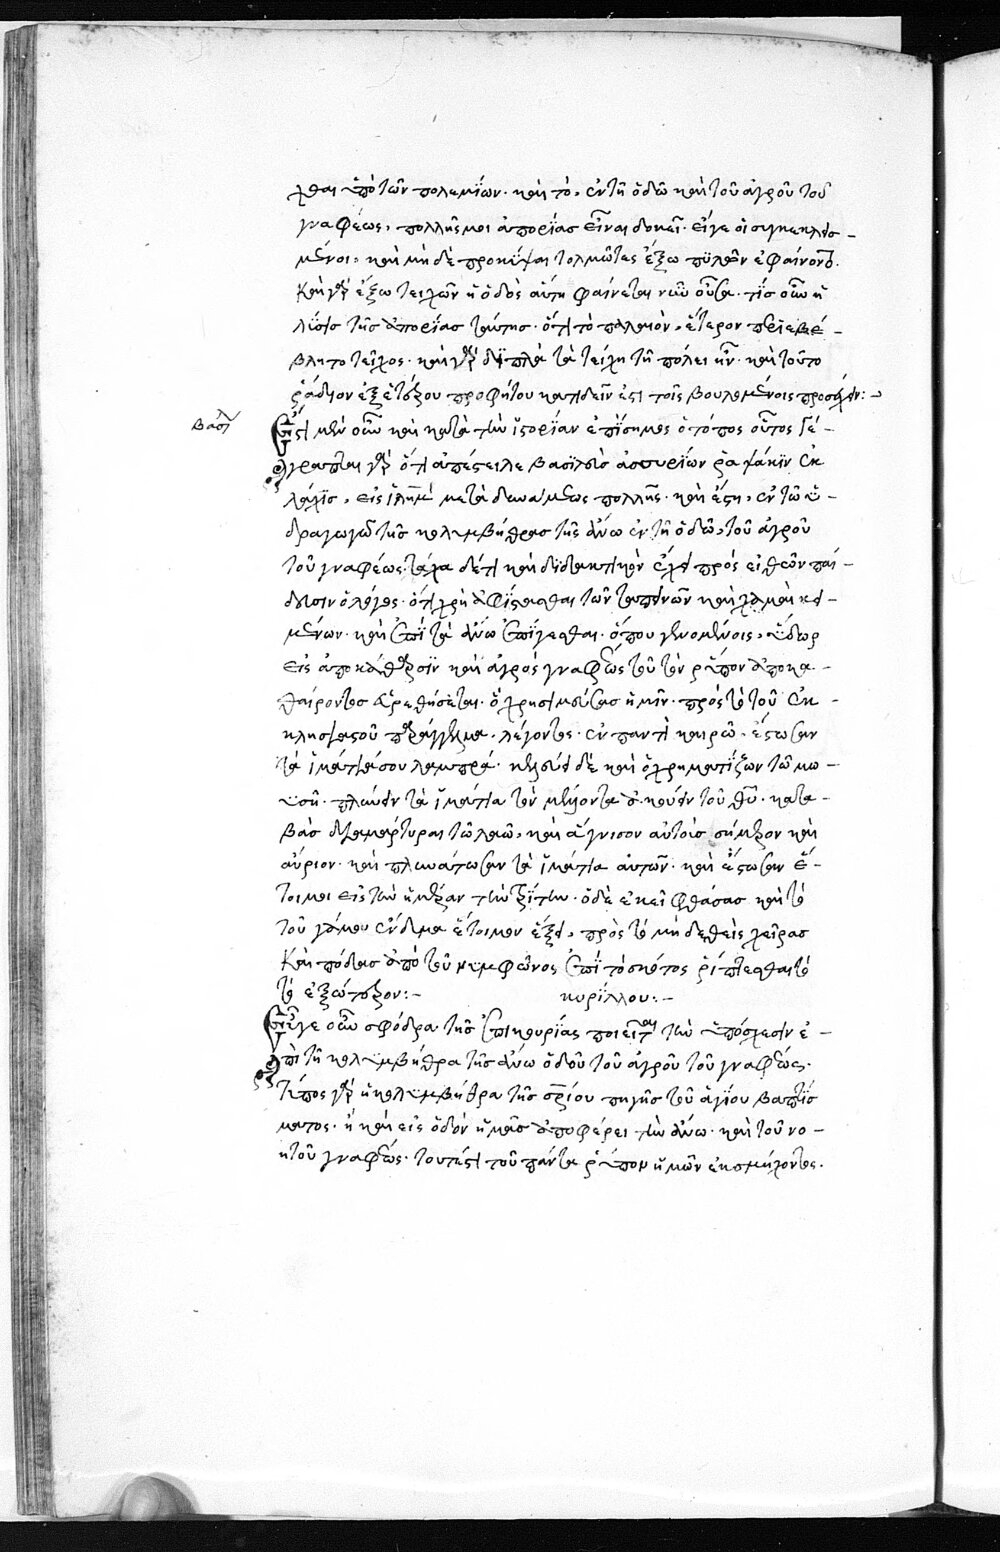 χθαι ὑπὸ τῶν πολεμίων· καὶ τὸ, ἐν τῇ ὁδῷ καὶ τοῦ ἀγροῦ τοῦ
γναφέως, πολλῆς μοι ἀπορίας εἶναι δοκεῖ· εἴγε οἱ συγκεκλεισ-
μένοι, καὶ μὴ δὲ προκύψαι τολμῶντες ἔξω πυλῶν ἐφαίνοντο.
Καὶ γὰρ ἔξω τειχῶν ἡ ὁδὸς αὕτη φαίνεται νῦν οὖσα· τίς οὖν ἡ
λύσις τῆς ἀπορίας ταύτης· ὅτι τὸ παλαιὸν, ἕτερον περιεβέ-
βλητο τεῖχος· καὶ γὰρ διπλᾶ τὰ τείχη τῇ πόλει ἦν· καὶ τοῦτο
ῥάδιον ἐξ ἑτέρου προφήτου κατιδεῖν ἐστι τοῖς βουλομένοις προσέχειν:-
Βασιλ
Ἔστι μὲν οὖν καὶ κατὰ τὴν ἱστορίαν ἐπίσημος ὁ τόπος οὗτος Γέ-
γραπται γὰρ ὅτι ἀπέστειλε βασιλεὺς ἀσσυρίων ῥαψάκην ἐκ
λάχις, εἰς ἱλὴμ μετὰ δυνάμεως πολλῆς· καὶ ἔστη, ἐν τῷ ὑ-
δραγωγῷ τῆς κολυμβήθρας τῆς ἄνω ἐν τῇ ὁδῷ, τοῦ ἀγροῦ
τοῦ γναφέως· τάχα δέ τι καὶ διδακτικὸν ἔχει πρὸς εἰθεῶν παί-
δευσιν ὁ λόγος· ὅτι χρὴ ἀφίστασθαι τῶν ταπεινῶν καὶ χαμαὶ κει-
μένων· καὶ ἐπὶ τὰ ἄνω ἐπείγεσθαι· ὅπου γενομένοις, ὕδωρ
εἰς ἀποκάθαρσιν καὶ ἀγρὸς γναφέως τοῦ τὸν ῥύπον ἀποκα-
θαίροντος εὑρεθήσεται· ὃ χρησιμεύσας ἡμῖν· πρὸς τὸ τοῦ ἐκ-
κλησιαστοῦ παράγγελμα, λέγοντος· ἐν παντὶ καιρῷ, ἔστωσαν
τὰ ἱμάτιά σου λαμπρά· κελεύει δὲ καὶ ὁ χρηματίζων τῷ μω-
ϋσῆ· πλύνειν τὰ ἱμάτια τὸν μέλλοντα ἀκούειν τοῦ θῦ· κατα-
βὰς διαμάρτυραι τῷ λαῷ, καὶ ἅγνισον αὐτοὺς σήμερον καὶ
αὔριον· καὶ πλυνάτωσαν τὰ ἱμάτια αὐτῶν· καὶ ἔστωσαν ἕ-
τοιμοι εἰς τὴν ἡμέραν τὴν τρίτην· ὁ δὲ ἐκεῖ φθάσας καὶ τὸ
τοῦ γάμου ἔνδυμα ἕτοιμον ἕξει, πρὸς τὸ μὴ δεθεὶς χεῖρας
Καὶ πόδας ἀπὸ τοῦ νυμφῶνος ἐπὶ τὸ σκότος ῥίπτεσθαι τὸ
τὸ ἐξώτερον:- κυρίλλου:-
Εὖγε οὖν σφόδρα τῆς ἐπικουρίας ποιεῖται τὴν ὑπόσχεσιν ἐ-
πὶ τῇ κολυμβήθρα τῆς ἄνω ὁδοῦ τοῦ ἀγροῦ τοῦ γναφέως.
Τύπος γὰρ ἡ κολυμβήθρα τῆς σρίου πηγῆς τοῦ ἁγίου βαπτίσ
ματος· ἣ καὶ εἰς ὁδὸν ἡμᾶς ἀποφέρει τὴν ἄνω· καὶ τοῦ νο-
ητοῦ γναφέως· τουτέστι τοῦ πάντα ῥύπον ἡμῶν ἐκσμήχοντος.